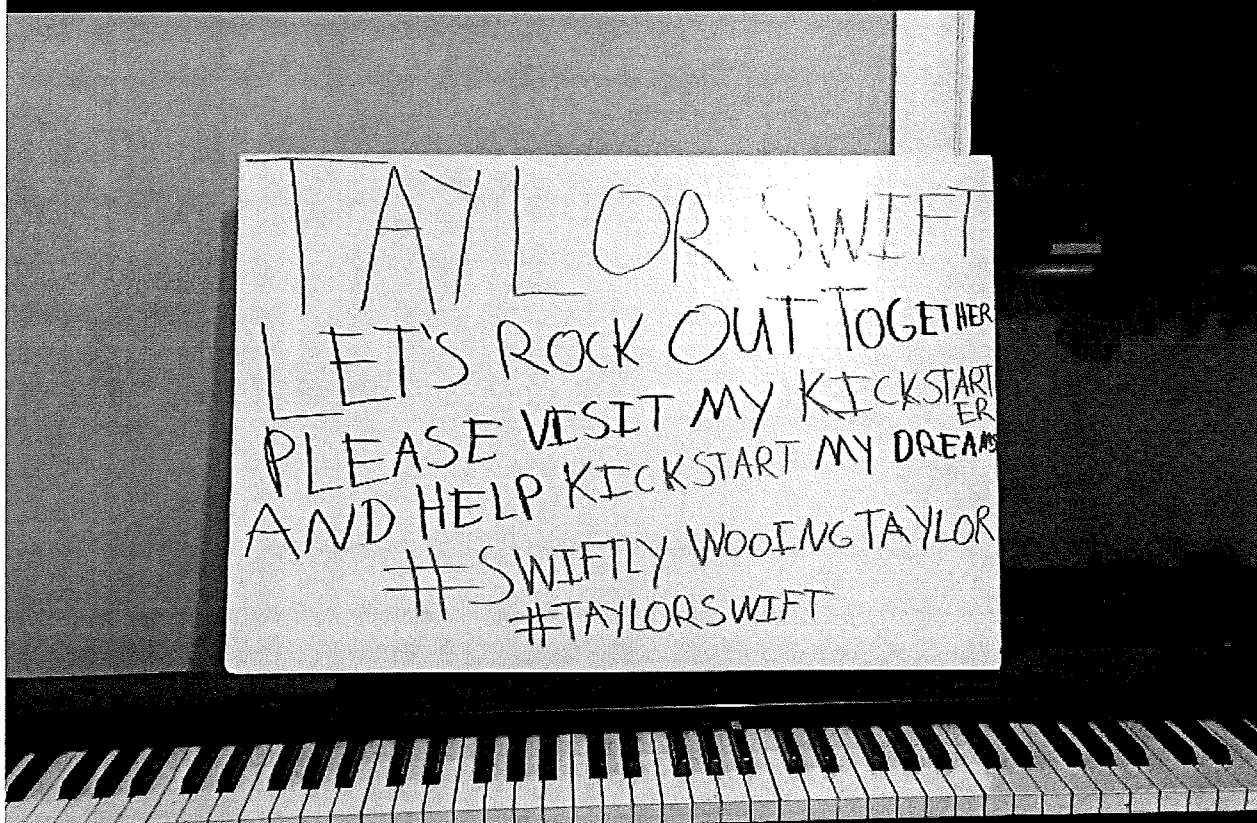 TAYLOR SWIFT
LET'S ROCK OUT TOGETHER
PLEASE VISIT MY KICKSTART
ER
AND HELP KICKSTART MY DREAMS
#SWIFTLY WOOING TAYLOR
#TAYLORSWIFT